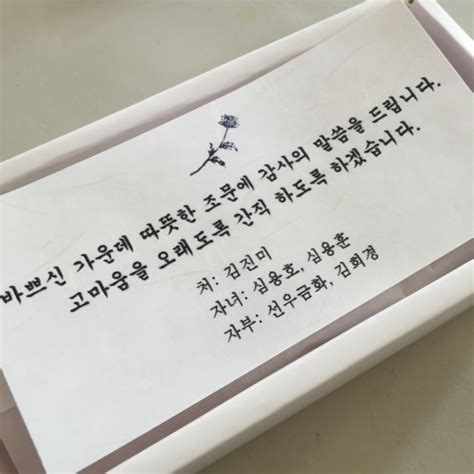 바쁘신 가운데 따뜻한 조문에 감사의 말씀을 드립니다.
고마움을 오래도록 간직 하도록 하겠습니다.
처: 김진미
자녀: 심용호, 심용훈
자부: 선우금화, 김희경